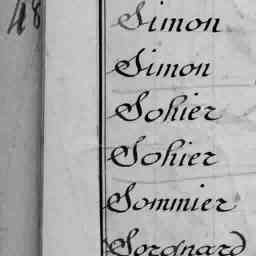 48
Simon
Simon
Sohier
Sohier
Sommier
Sorgnard